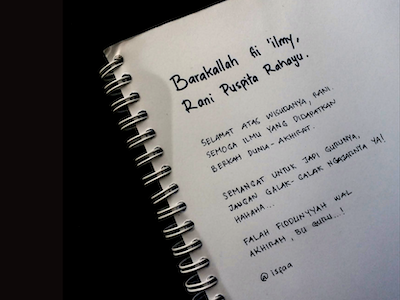 Barakallah fii 'ilmy,
Rani Puspita Rahayu.
SELAMAT ATAS WISUDANYA, RANI.
SEMOGA ILMU YANG DIDAPATKAN
BERKAH DUNIA-AKHIRAT.
SEMANGAT UNTUK JADI GURUNYA,
JANGAN GALAK-GALAK NGAJARNYA YA!
HAHAHA...
FALAH FIDDUNYYAH WAL
AKHIRAH, BU GURU...!
@isqaa